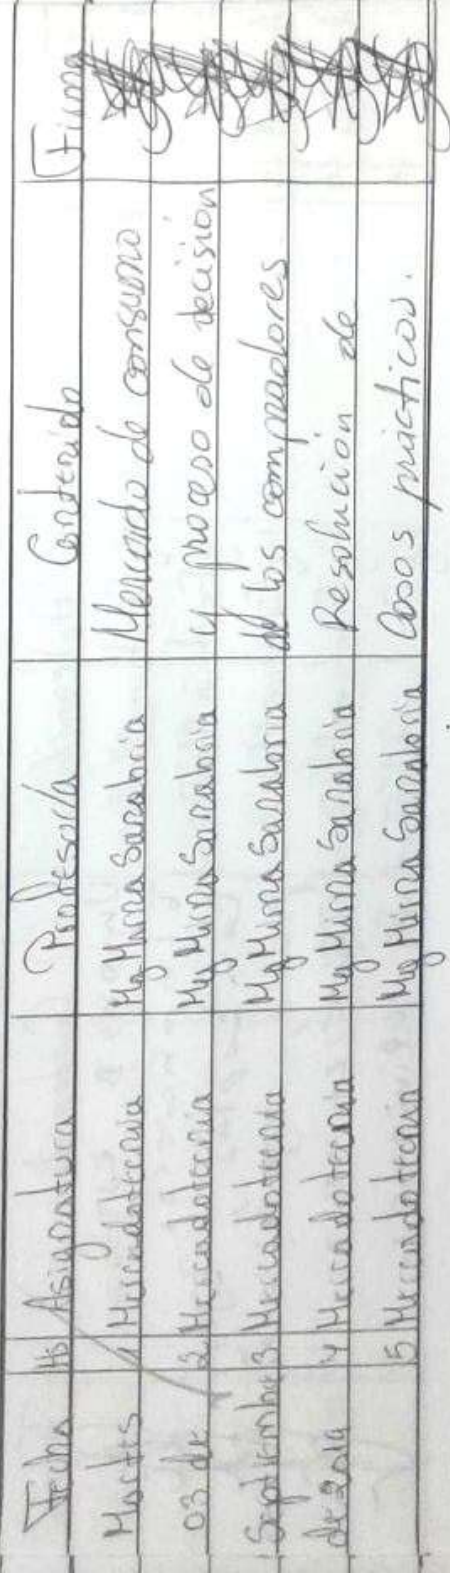 Fecha Hs Asignatura Profesor/a Contenido Firma
Martes 1 Mercadotecnia Mg Mirna Sanabria Mercado de consumo
03 de 2 Mercadotecnia Mg Mirna Sanabria y proceso de decisión
Septiembre 3 Mercadotecnia Mg Mirna Sanabria de los compradores
de 2019 4 Mercadotecnia Mg Mirna Sanabria Resolución de
5 Mercadotecnia Mg Mirna Sanabria Casos prácticos.